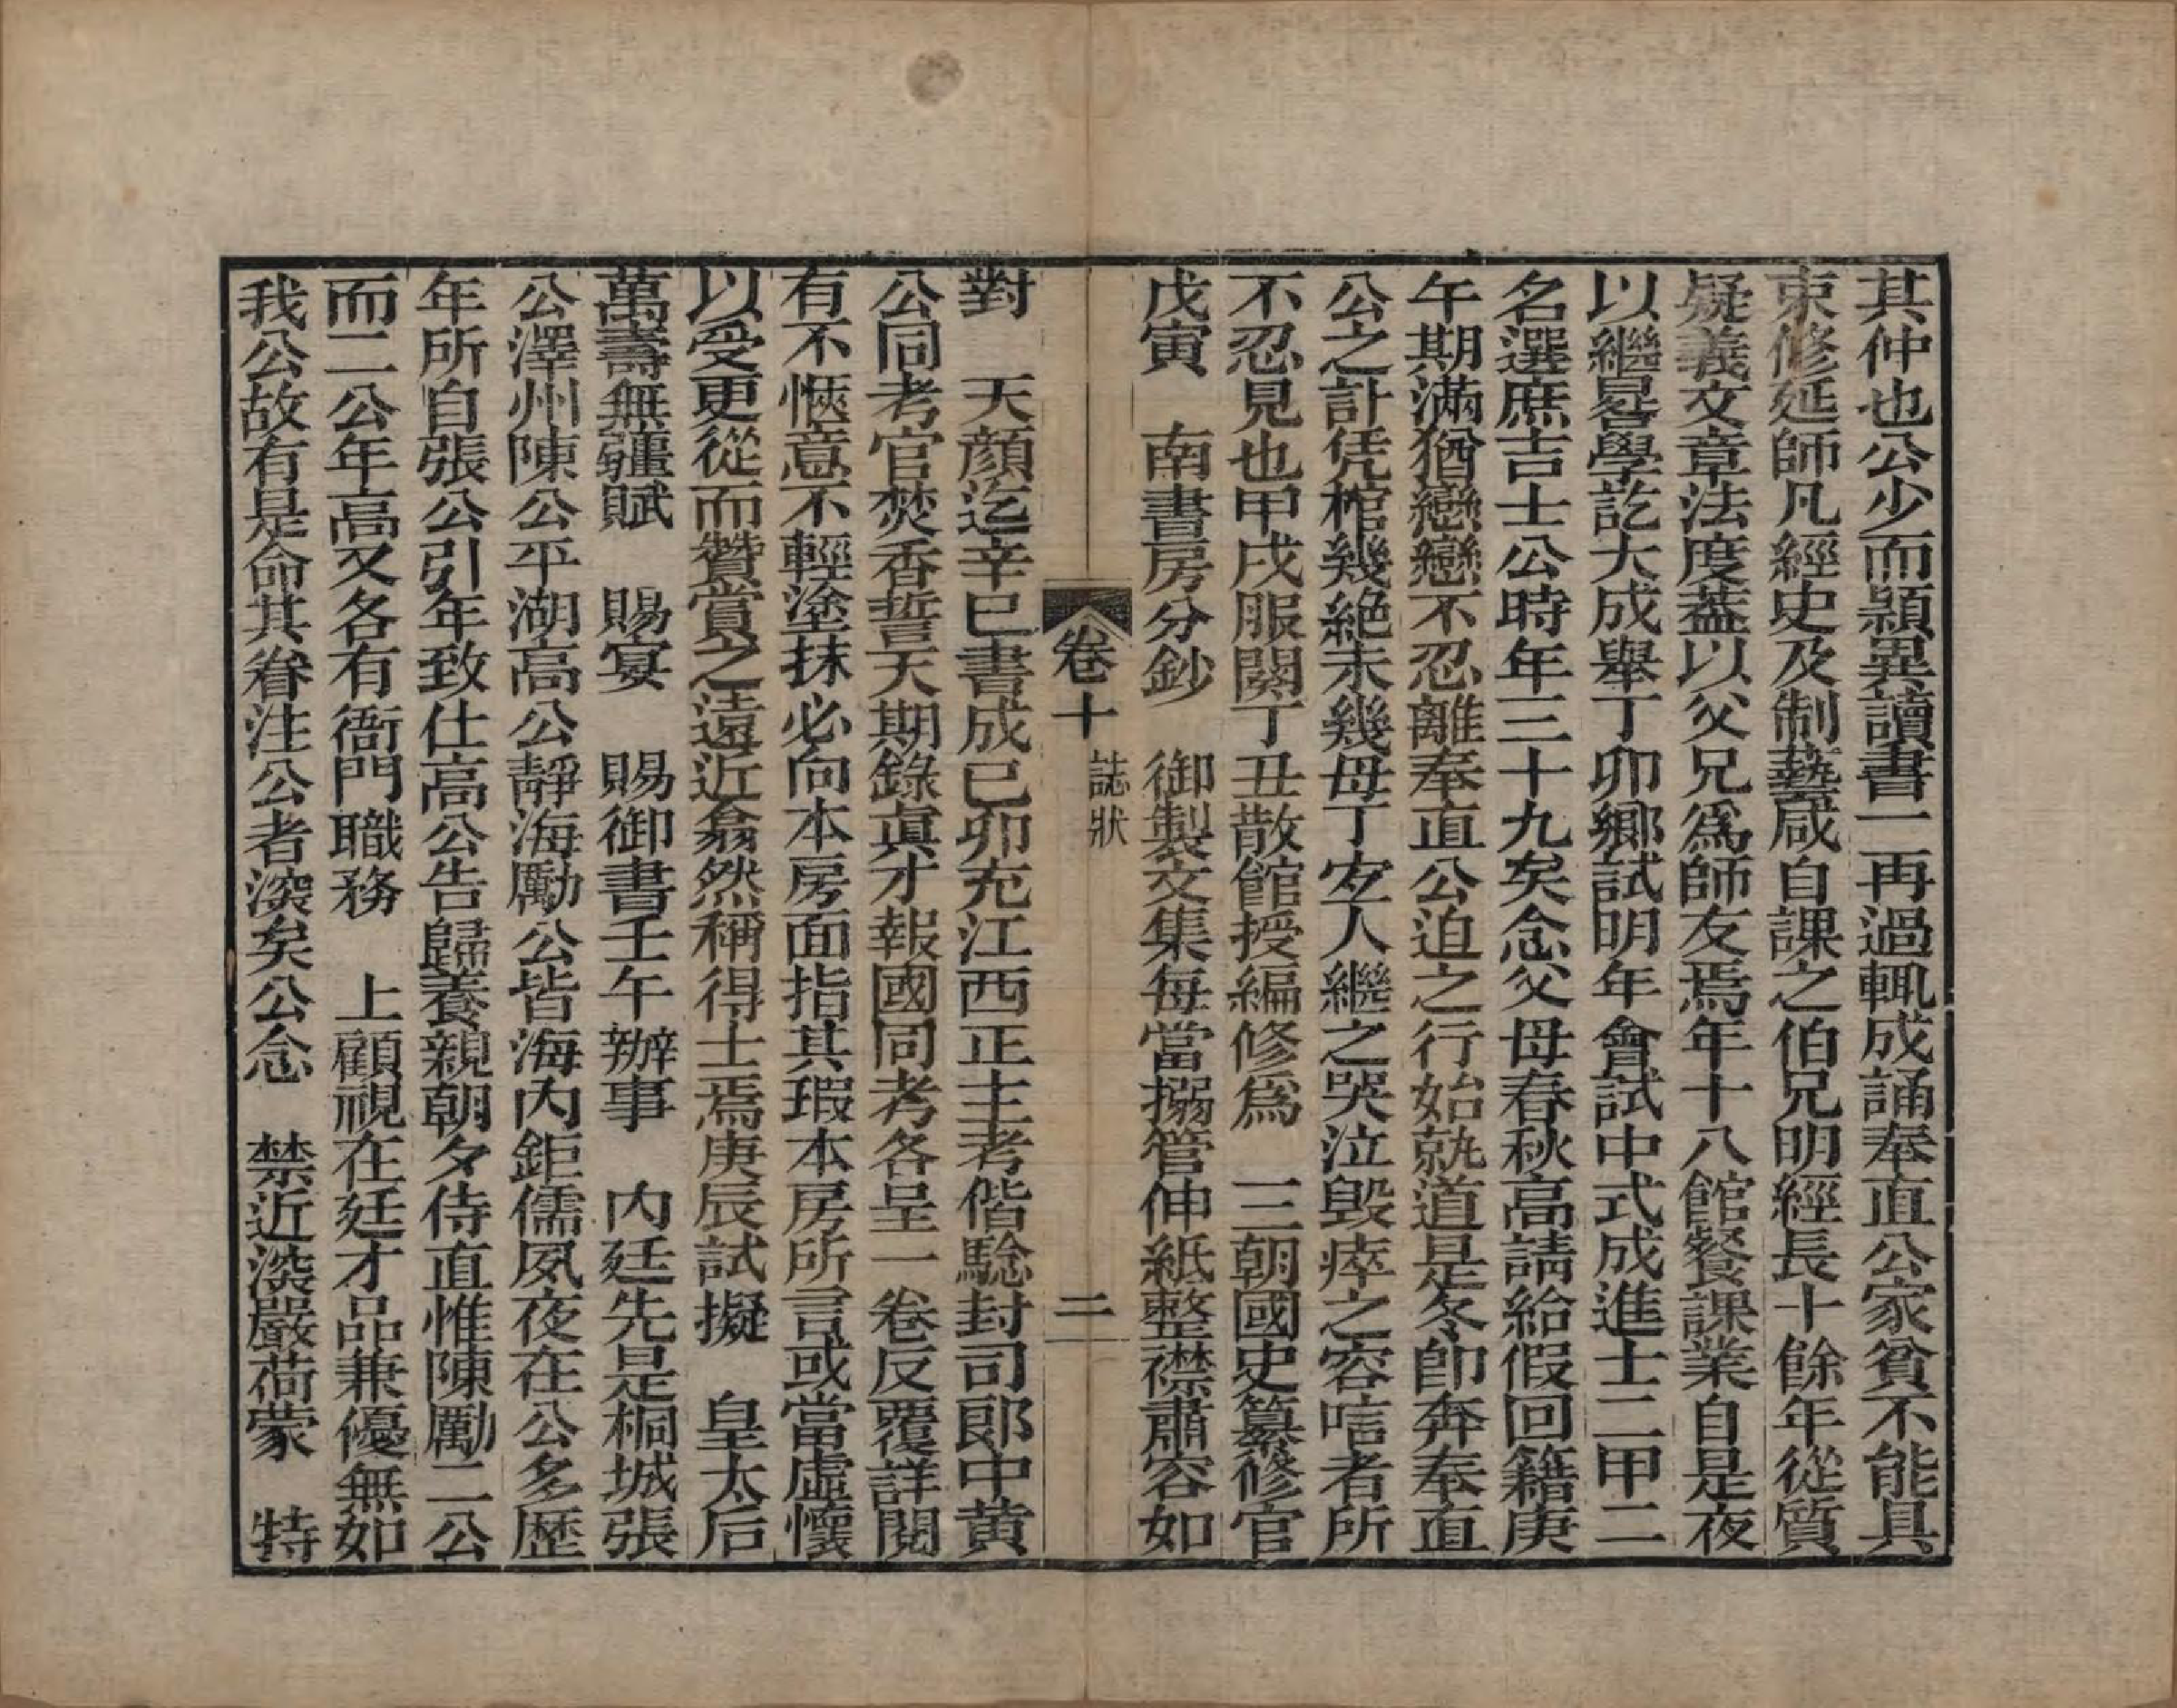 其仲也公少而穎異讀書一再過輒成誦奉直公家貧不能具
束修延師凡經史及制藝咸自課之伯兄明經長十餘年從質
疑義文章法度葢以父兄爲師友焉年十八館餐課業自是夜
以繼晷學訖大成舉丁卯鄉試明年會試中式成進士二甲二
名選庶吉士公時年三十九矣念父母春秋高請給假回籍庚
午期滿猶戀戀不忍離奉直公迫之行始就道是冬卽奔奉直
公之訃凭棺幾絶未幾母丁宜人繼之哭泣毁瘁之容唁者所
不忍見也甲戌服闋丁丑散館授編修爲　三朝國史纂修官
戊寅　南書房分鈔　御製文集每當搦管伸紙整襟肅容如
卷十　誌狀　二
對　天顏迄辛巳書成己卯充江西正主考偕騐封司郎中黃
公同考官焚香誓天期錄眞才報國同考各呈一卷反覆詳閱
有不愜意不輕塗抹必向本房面指其瑕本房所言或當虛懷
以受更從而贊賞之遠近翕然稱得士焉庚辰試擬　皇太后
萬壽無疆賦　賜宴　賜御書壬午辦事　内廷先是桐城張
公澤州陳公平湖高公靜海勵公皆海内鉅儒夙夜在公多歷
年所自張公引年致仕高公告歸養親朝夕侍直惟陳勵二公
而二公年高又各有衙門職務　上顧視在廷才品兼優無如
我公故有是命其眷注公者深矣公念　禁近深嚴荷蒙　特